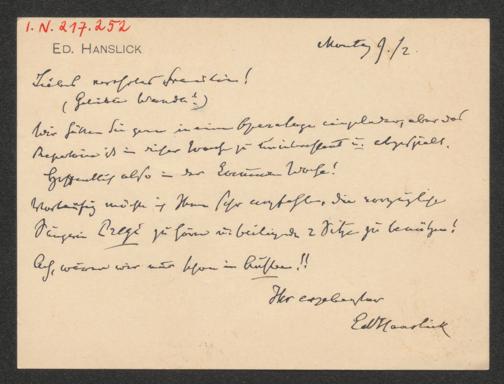 I. N. 217.252
ED. HANSLICK
Montag 9./2.
Liebes verehrtes Fräulein!
(Geliebte Wanda!)
Wir hätten Sie gern in eine Opernloge eingeladen, aber das
Repertoire ist in dieser Woche zu uninteressant u. abgespielt.
Hoffentlich also in der kommenden Woche!
Vorläufig möchte ich Ihnen sehr empfehlen, die vorzügliche
Sängerin Pregi zu hören u. beiliegende 2 Sitze zu benützen!
Ach, wären wir nur schon in !!
Ihr ergebenster
Ed Hanslick